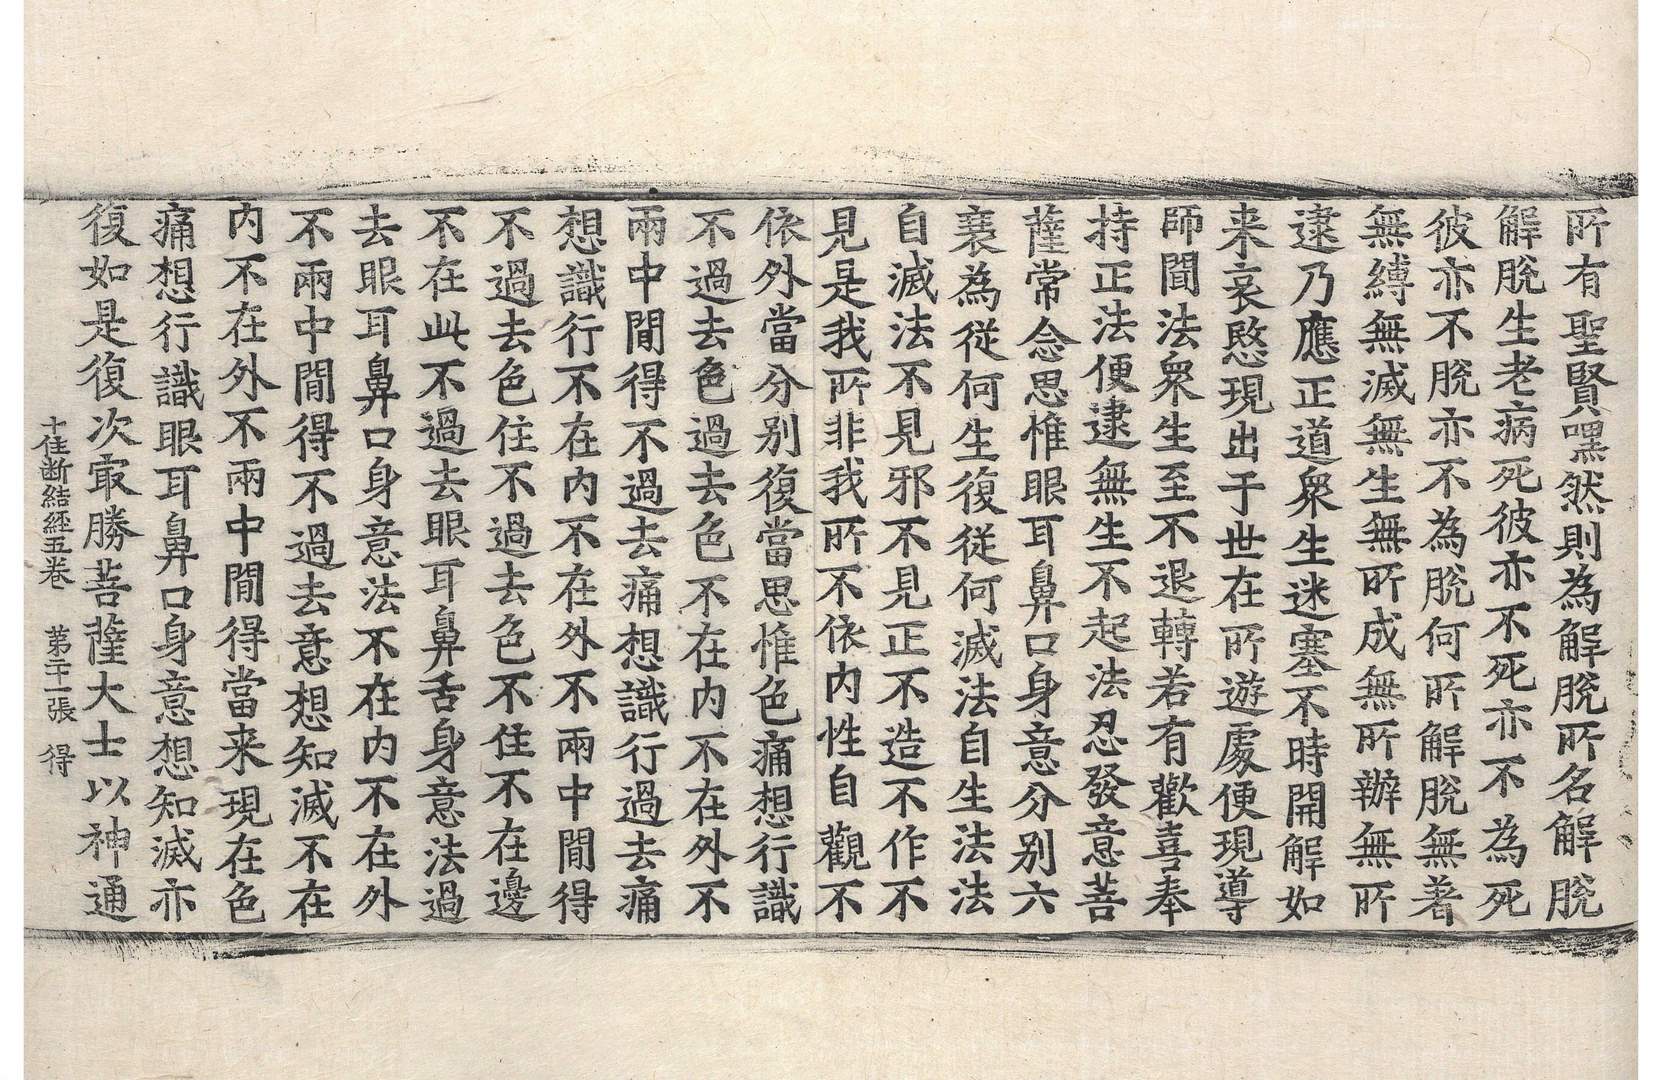 所有聖賢嘿然則為解脫所名解脫
解脫生老病死彼亦不死亦不為死
彼亦不脫亦不為脫何所解脫無著
無縛無滅無生無所成無所辦無所
逮乃應正道衆生迷塞不時開解如
来哀愍現出于世在所遊處便現導
師聞法衆生至不退轉若有歡喜奉
持正法便逮無生不起法忍發意菩
薩常念思惟眼耳鼻口身意分別六
衰為從何生復從何滅法自生法法
自滅法不見邪不見正不造不作不
見是我所非我所不依內性自觀不
依外當分別復當思惟色痛想行識
不過去色過去色不在內不在外不
兩中閒得不過去痛想識行過去痛
想識行不在內不在外不兩中閒得
不過去色住不過去色不住不在邊
不在此不過去眼耳鼻舌身意法過
去眼耳鼻口身意法不在內不在外
不兩中閒得不過去意想知滅不在
內不在外不兩中閒得當来現在色
痛想行識眼耳鼻口身意想知滅亦
復如是復次㝡勝菩薩大士以神通
十住断結經五卷 第二十一張 得